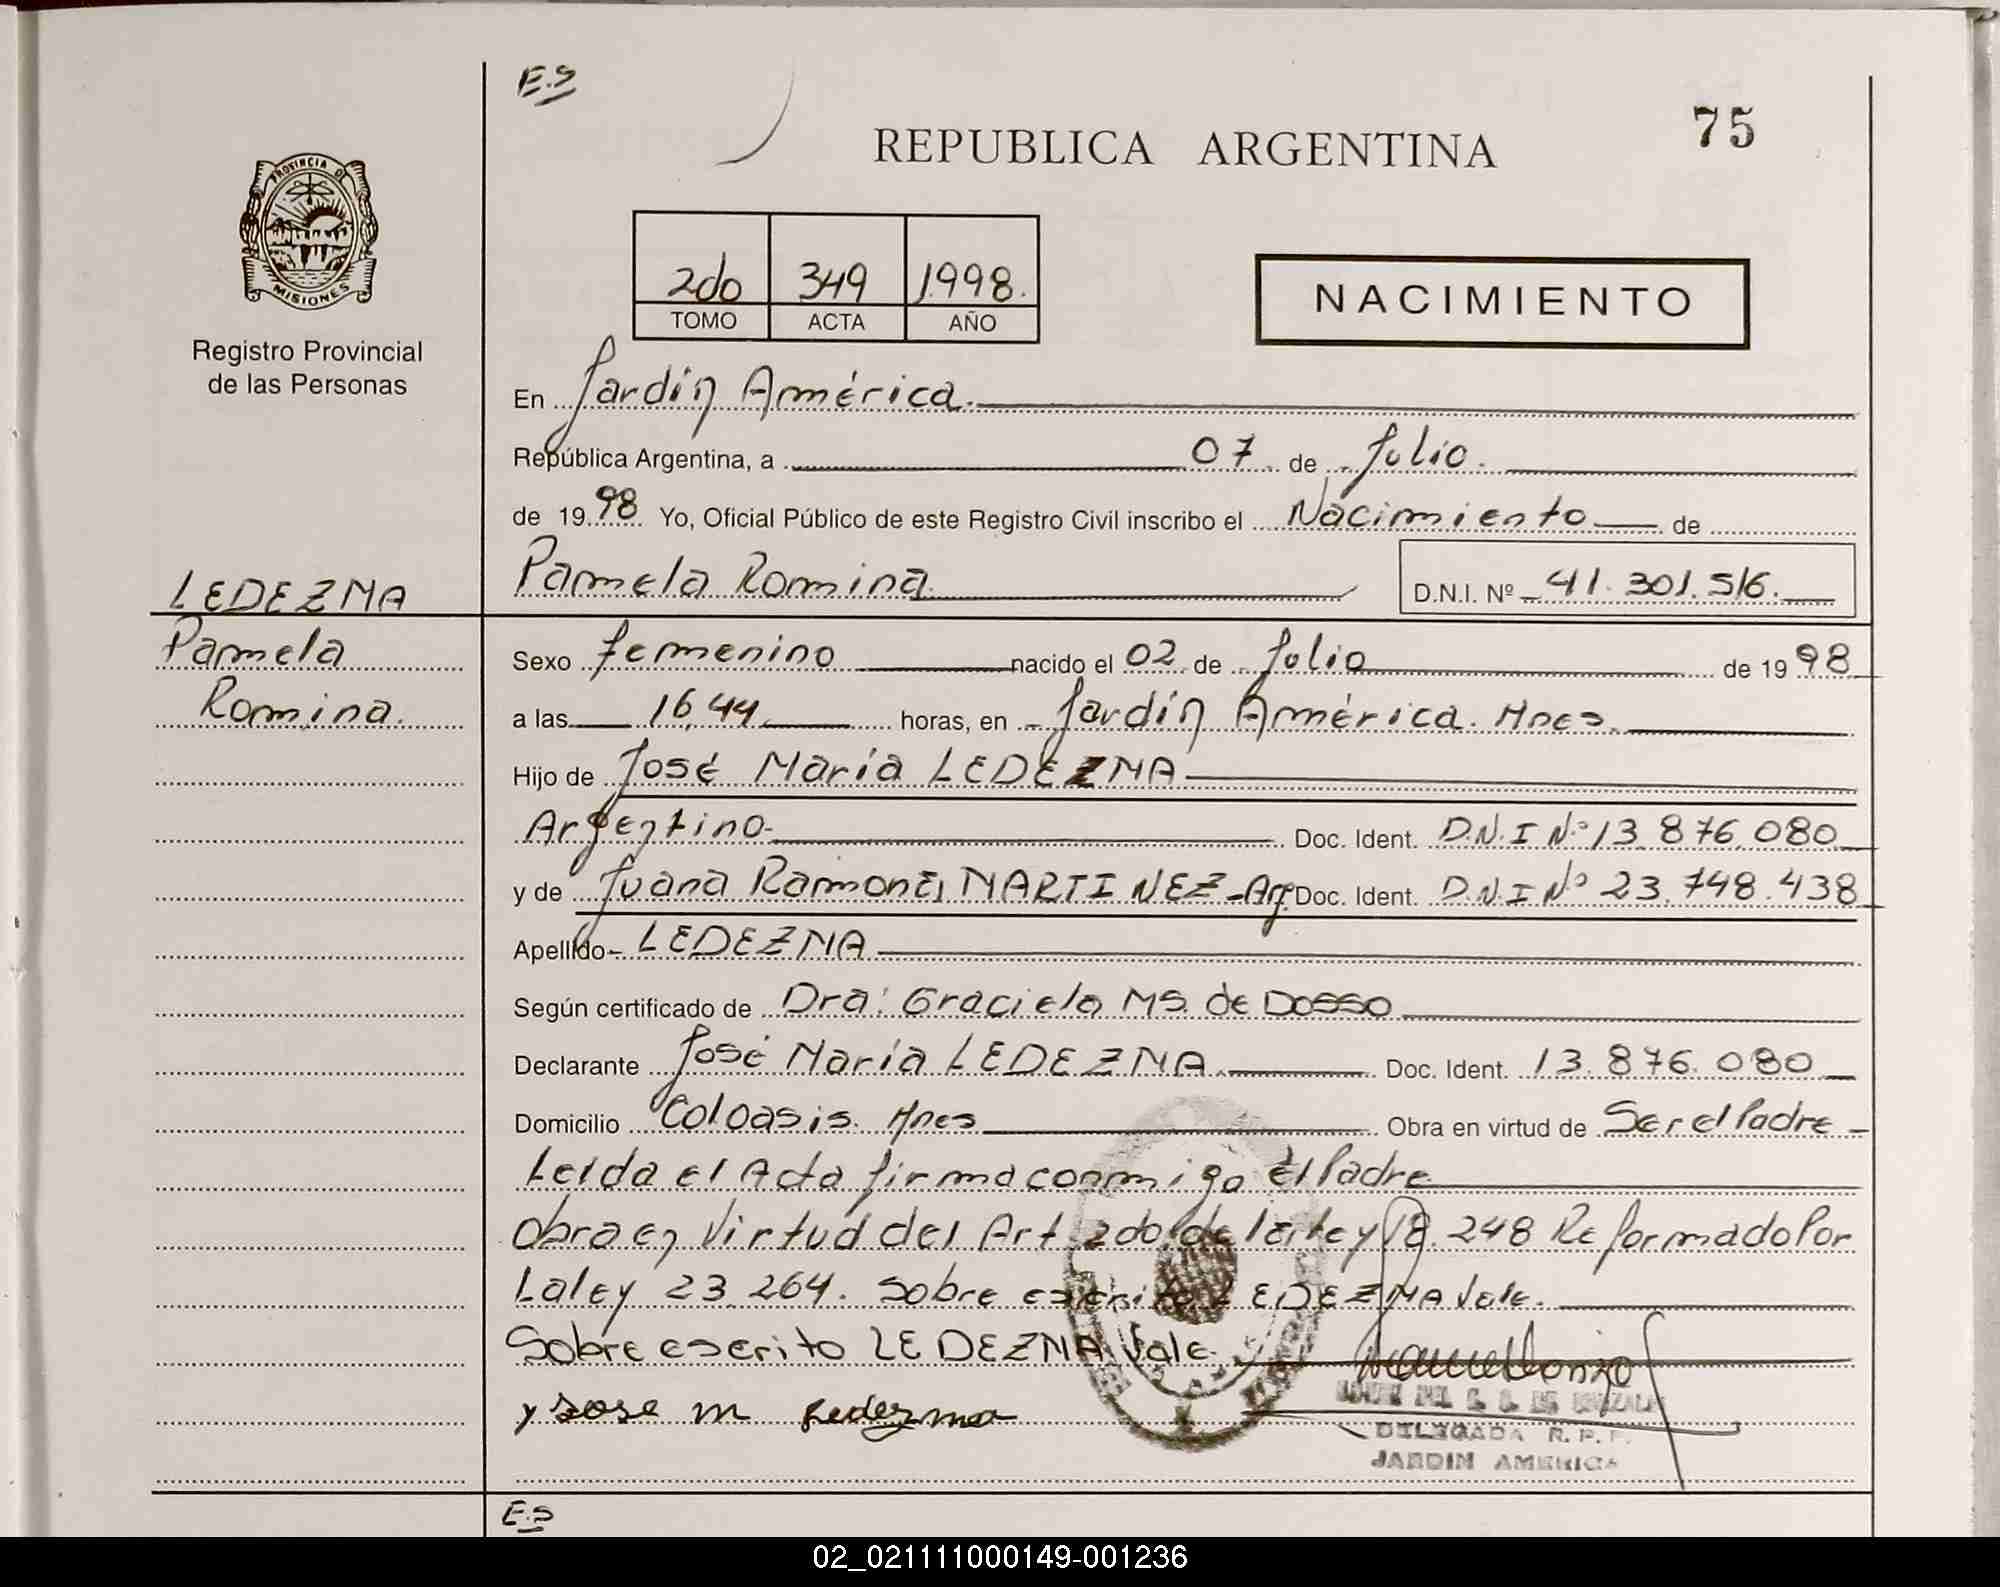 E.S
75
REPUBLICA ARGENTINA
PROVINCIA DE
MISIONES
2do 349 1998.
TOMO ACTA AÑO
NACIMIENTO
Registro Provincial
de las Personas
En Jardín América.
República Argentina, a 07 de Julio.
de 19 98 Yo, Oficial Público de este Registro Civil inscribo el Nacimiento de
LEDEZMA
Pamela Romina
D.N.I. Nº 41.301.516.
Pamela
Romina.
Sexo femenino nacido el 02 de Julio de 19 98
a las 16,44 horas, en Jardín América. Mnes.
Hijo de José María LEDEZMA
Argentino- Doc. Ident. D.N.I Nº 13.876.080
y de Juana Ramona MARTINEZ-Arg. Doc. Ident. D.N.I Nº 23.748.438
Apellido- LEDEZMA
Según certificado de Dra: Graciela MS. de DOSSO
Declarante José María LEDEZMA. Doc. Ident. 13.876.080
Domicilio Col Oasis. Mnes Obra en virtud de Ser el Padre
Leida el Acta firma conmigo el Padre
Obra en Virtud del Art 2do de la ley 18.248 Reformado Por
La ley 23.264. Sobre escrito LEDEZMA Vale.
Sobre escrito LEDEZMA Vale.
y Jose m Ledezma
DE GONZALEZ
DELEGADA R. P. P.
JARDIN AMERICA
E.S
02_021111000149-001236